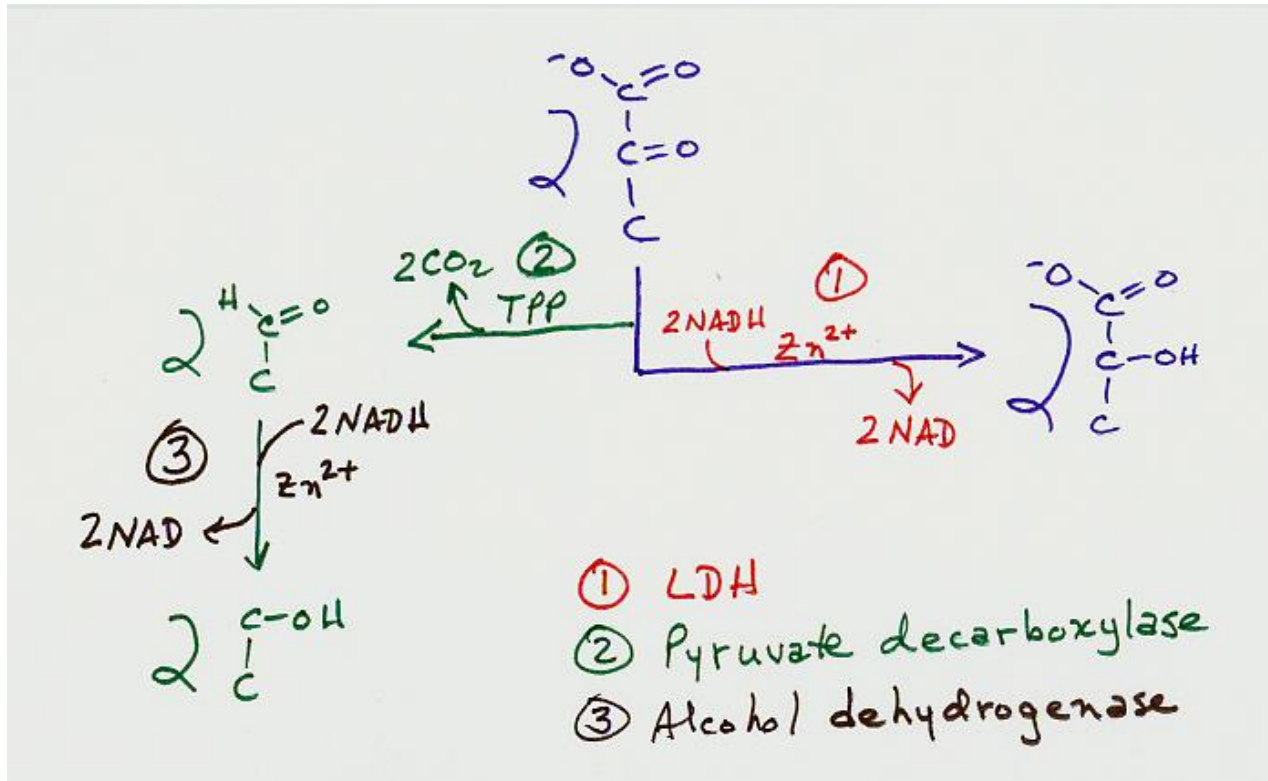 -O C=O
2 C=O
C
2CO2 ②
TPP
H C=O
2 C
①
2NADH Zn2+
2 NAD
-O C=O
2 C-OH
C
③
2NADH
Zn2+
2NAD
2 C-OH
C
① LDH
② Pyruvate decarboxylase
③ Alcohol dehydrogenase